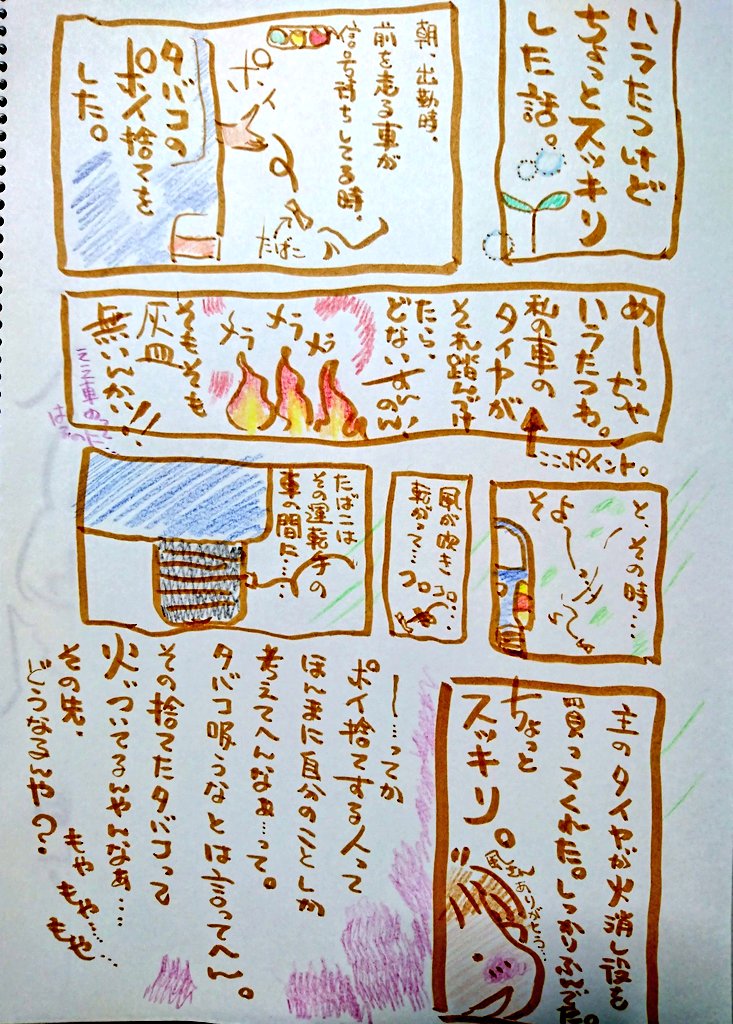 ハラたつけど
ちょっとスッキリ
した話。
朝、出勤時、
前を走る車が
信号待ちしてる時、
ポイ
たばこ
タバコの
ポイ捨てを
した。
めーっちゃ
ハラたつわ。
私の車の
タイヤが
それ踏んで
たら、
どないすんのん!
メラ
メラ
メラ
そもそも
灰皿
無いんかい!!
ええ車
ここポイント。
と、その時…
そよ〜
風が吹き
転がって…
コロ…
コロ
たばこは
その運転手の
車の間に……
主のタイヤが火消し役を
買ってくれた。
ちょっと
スッキリ。
風さん
ありがとう…
ー…ってか
ポイ捨てする人って
ほんまに自分のことしか
考えてへんなぁ…って。
タバコ吸うなとは言ってへん。
その捨てたタバコって
火ついてるんやんなぁ….
その先、
どうなるんや?
もや もや…… もや